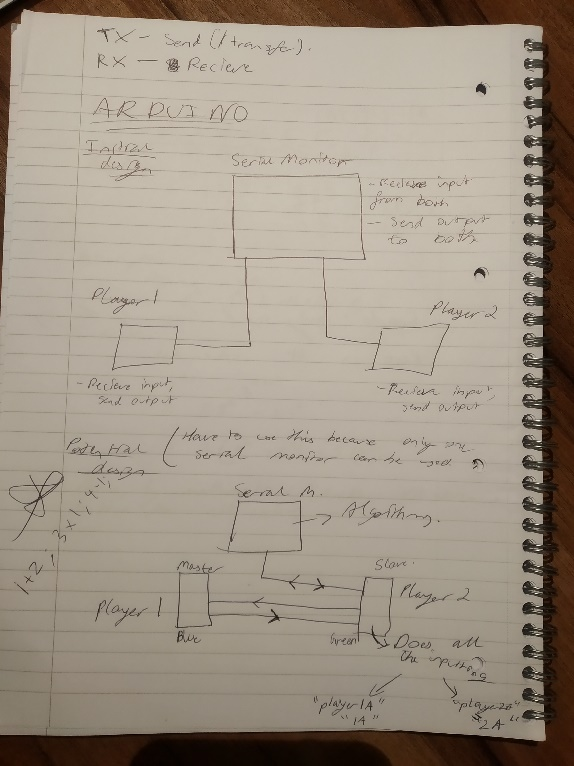 TX - Send (/ transfer).
RX - Recieve
ARDUINO
Initial
design
Serial Monitor
- Recieve input
from both
- Send output
to both
Player 1
Player 2
- Recieve input,
send output
- Recieve input,
send output
Potential
design
(Have to use this because only one
serial monitor can be used.
1+2; 3x1; 4-1;
Serial M.
Algorithm.
Master
Slave.
Player 1
Player 2
Blue
Green
Does all
the inputting
"player1A"
"1A"
"player2A"
"2A"